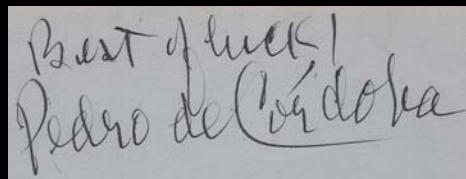 Best of luck!
Pedro de Córdoba